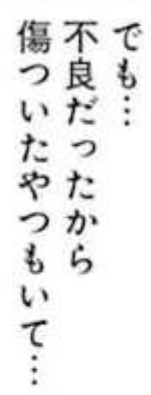 でも…
不良だったから
傷ついたやつもいて…